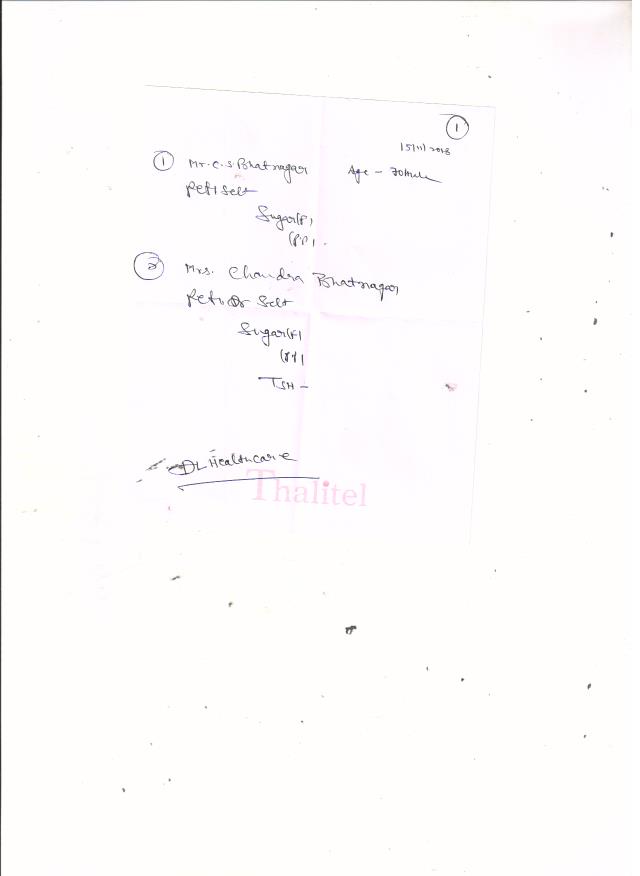 ①
15/11/2018
① Mr. C. S. Bhatnagar Age - 70 Male
Ref: Self
Sugar (F)
(PP)
② Mrs. Chandra Bhatnagar
Ref: Dr Self
Sugar (F)
(PP)
TSH -
DL Healthcare
Thalitel